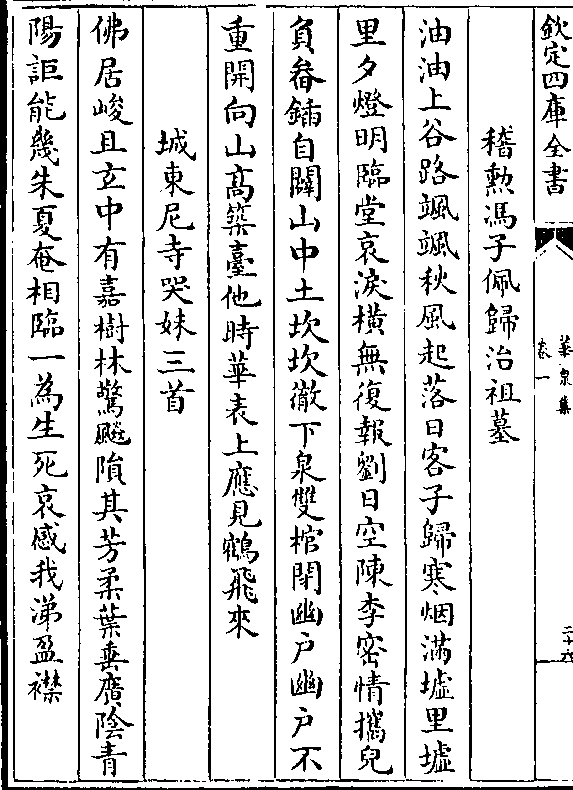 欽定四庫全書
華泉集
卷一
二十六
稽勲馮子佩歸治祖墓
油油上谷路颯颯秋風起落日客子歸寒烟滿墟里墟
里夕燈明臨堂哀淚橫無復報劉日空陳李密情攜兒
負畚鍤自闢山中土坎坎徹下泉雙棺閉幽戶幽戶不
重開向山髙築臺他時華表上應見鶴飛來
城東尼寺哭妹三首
佛居峻且玄中有嘉樹林驚飈隕其芳柔葉垂廣陰青
陽詎能幾朱夏奄相臨一為生死哀感我涕盈襟